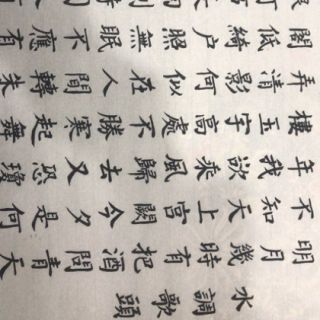 水調歌頭
明月幾時有把酒問青天
不知天上宮闕今夕是何
年我欲乘風歸去又恐瓊
樓玉宇高處不勝寒起舞
弄清影何似在人間轉朱
閣低綺户照無眠不應有